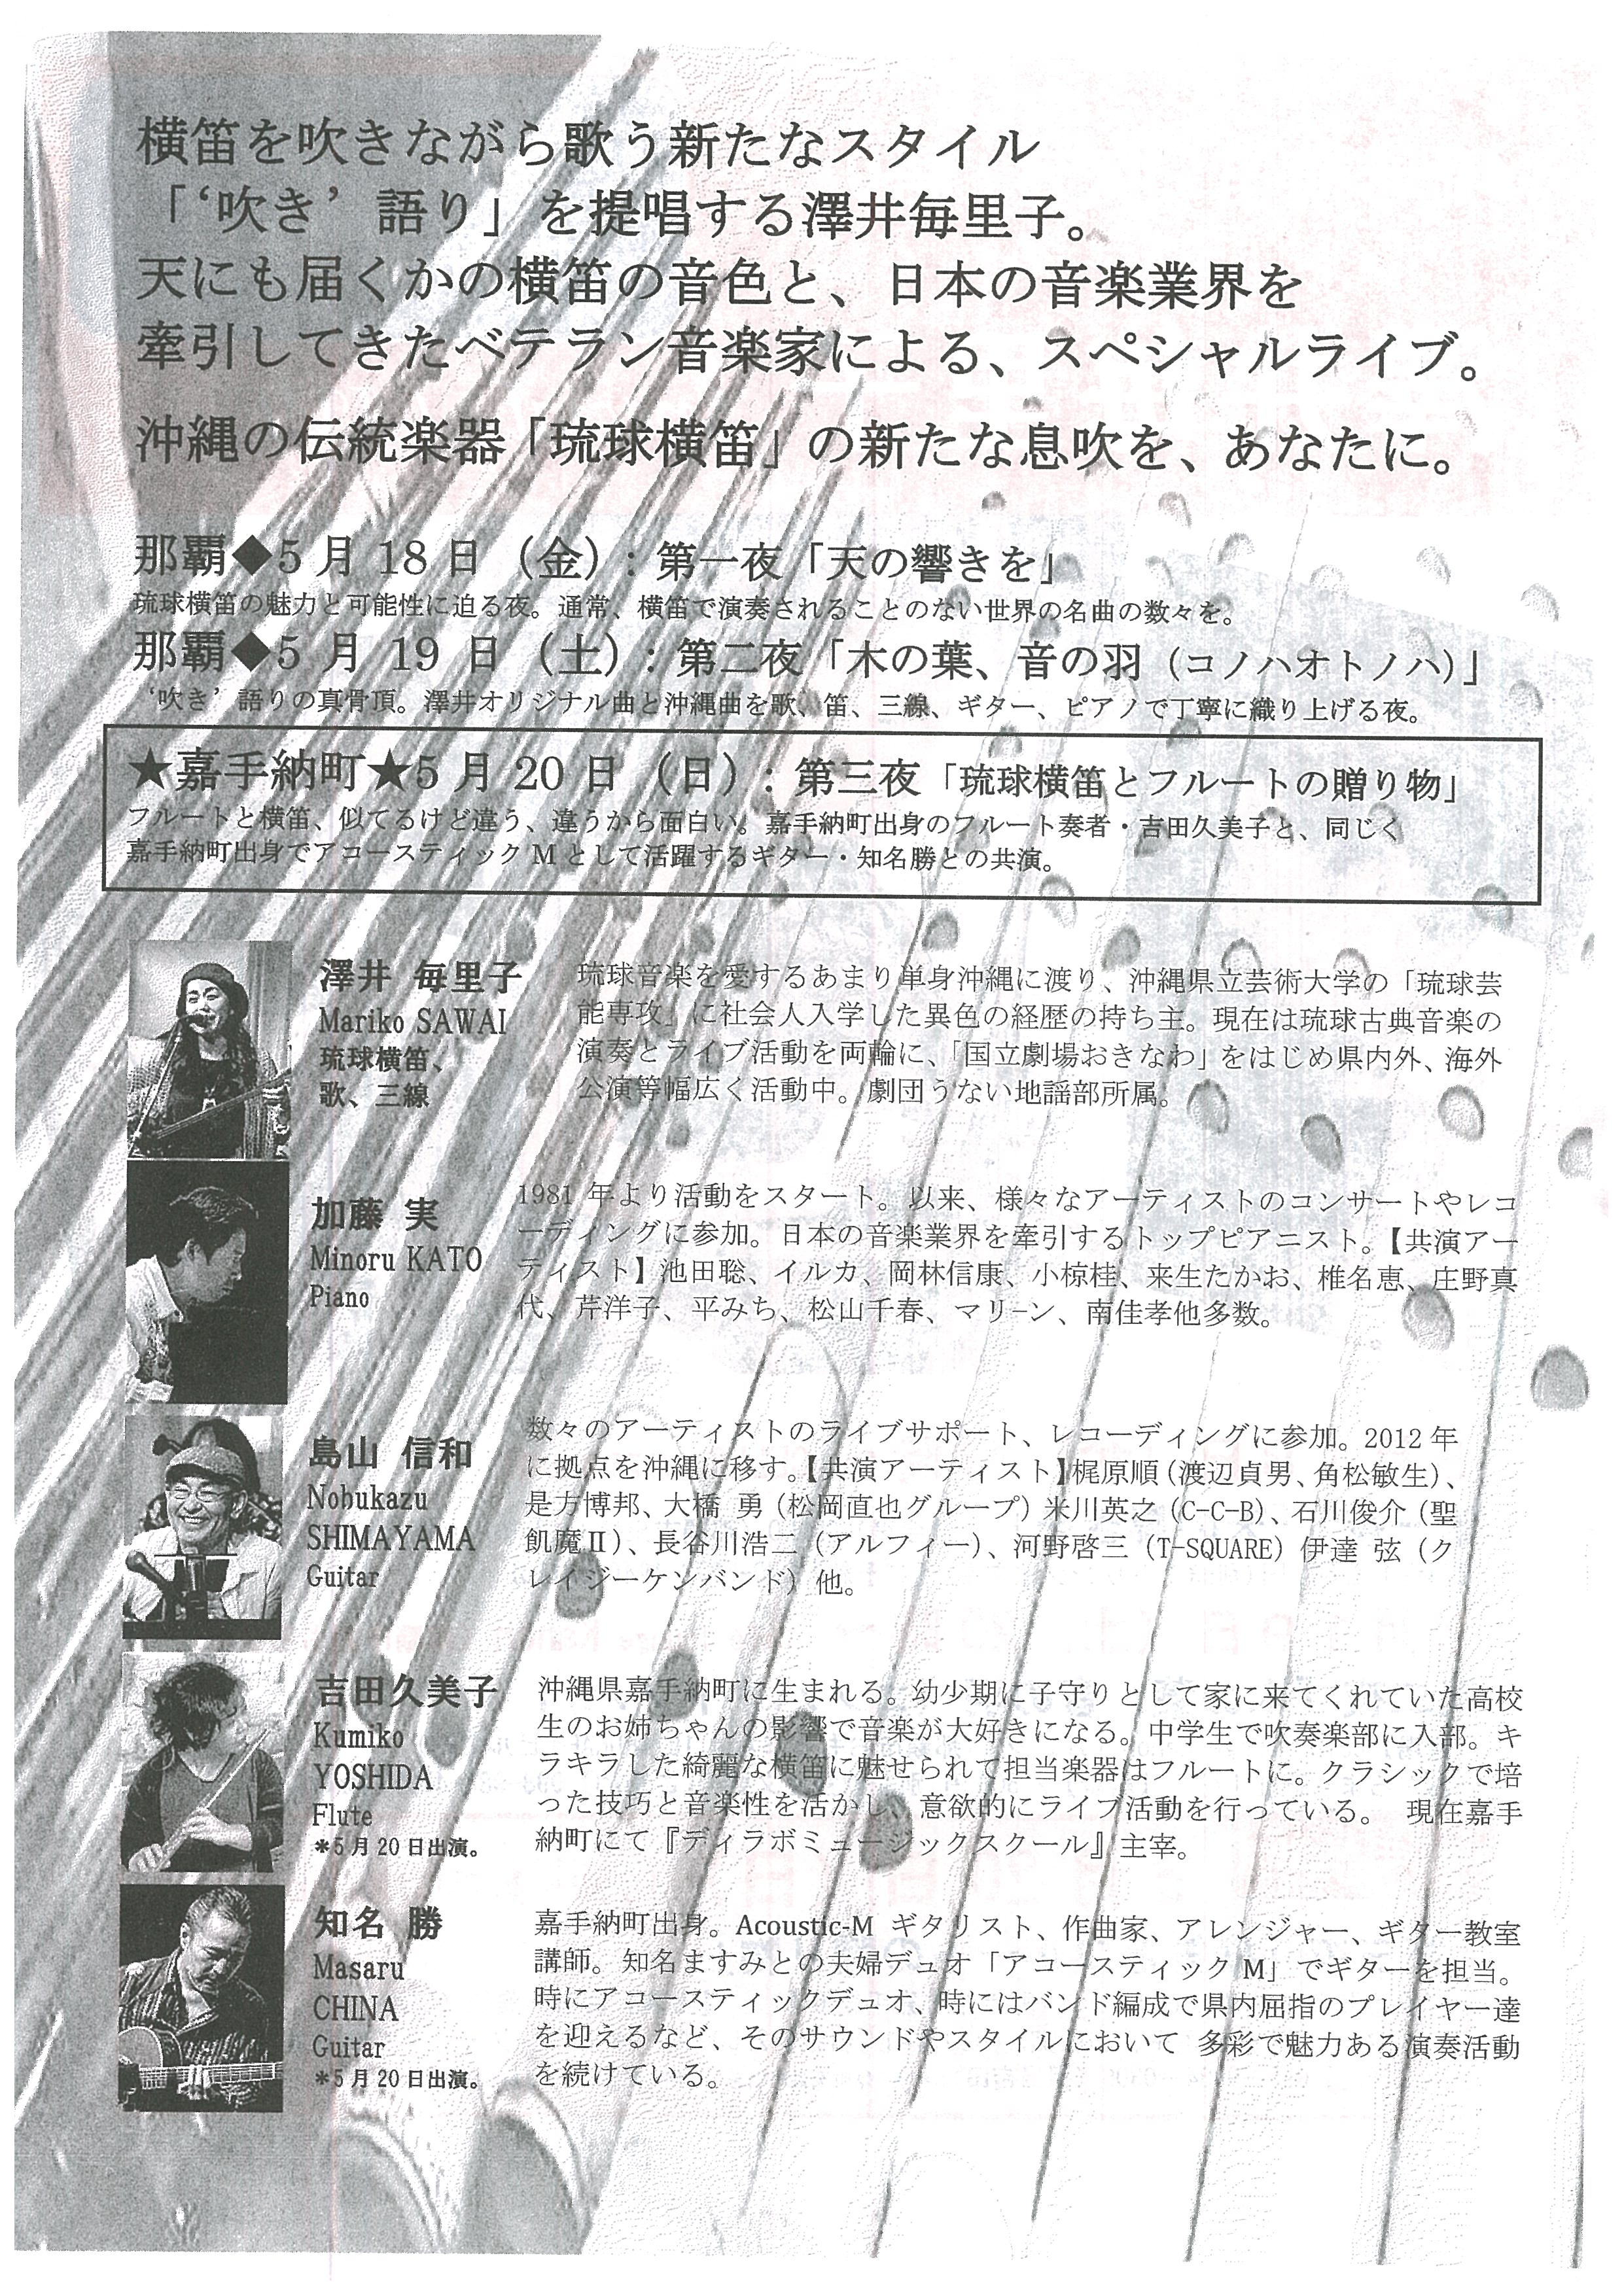 横笛を吹きながら歌う新たなスタイル
「‘吹き’語り」を提唱する澤井毎里子。
天にも届くかの横笛の音色と、日本の音楽業界を
牽引してきたベテラン音楽家による、スペシャルライブ。
沖縄の伝統楽器「琉球横笛」の新たな息吹を、あなたに。
那覇◆5月18日（金）：第一夜「天の響きを」
琉球横笛の魅力と可能性に迫る夜。通常、横笛で演奏されることのない世界の名曲の数々を。
那覇◆5月19日（土）：第二夜「木の葉、音の羽（コノハオトノハ）」
‘吹き’語りの真骨頂。澤井オリジナル曲と沖縄曲を歌、笛、三線、ギター、ピアノで丁寧に織り上げる夜。
★嘉手納町★5月20日（日）：第三夜「琉球横笛とフルートの贈り物」
フルートと横笛、似てるけど違う、違うから面白い。嘉手納町出身のフルート奏者・吉田久美子と、同じく
嘉手納町出身でアコースティックMとして活躍するギター・知名勝との共演。
澤井 毎里子
Mariko SAWAI
琉球横笛、
歌、三線
琉球音楽を愛するあまり単身沖縄に渡り、沖縄県立芸術大学の「琉球芸
能専攻」に社会人入学した異色の経歴の持ち主。現在は琉球古典音楽の
演奏とライブ活動を両輪に、「国立劇場おきなわ」をはじめ県内外、海外
公演等幅広く活動中。劇団うない地謡部所属。
加藤 実
Minoru KATO
Piano
1981年より活動をスタート。以来、様々なアーティストのコンサートやレコ
ーディングに参加。日本の音楽業界を牽引するトップピアニスト。【共演アー
ティスト】池田聡、イルカ、岡林信康、小椋桂、来生たかお、椎名恵、庄野真
代、芹洋子、平みち、松山千春、マリーン、南佳孝他多数。
島山 信和
Nobukazu
SHIMAYAMA
Guitar
数々のアーティストのライブサポート、レコーディングに参加。2012年
に拠点を沖縄に移す。【共演アーティスト】梶原順（渡辺貞男、角松敏生）、
是方博邦、大橋 勇（松岡直也グループ）米川英之（C-C-B）、石川俊介（聖
飢魔Ⅱ）、長谷川浩二（アルフィー）、河野啓三（T-SQUARE）伊達 弦（ク
レイジーケンバンド）他。
吉田久美子
Kumiko
YOSHIDA
Flute
＊5月20日出演。
沖縄県嘉手納町に生まれる。幼少期に子守りとして家に来てくれていた高校
生のお姉ちゃんの影響で音楽が大好きになる。中学生で吹奏楽部に入部。キ
ラキラした綺麗な横笛に魅せられて担当楽器はフルートに。クラシックで培
った技巧と音楽性を活かし、意欲的にライブ活動を行っている。 現在嘉手
納町にて『ディラボミュージックスクール』主宰。
知名 勝
Masaru
CHINA
Guitar
＊5月20日出演。
嘉手納町出身。Acoustic-M ギタリスト、作曲家、アレンジャー、ギター教室
講師。知名ますみとの夫婦デュオ「アコースティックM」でギターを担当。
時にアコースティックデュオ、時にはバンド編成で県内屈指のプレイヤー達
を迎えるなど、そのサウンドやスタイルにおいて 多彩で魅力ある演奏活動
を続けている。